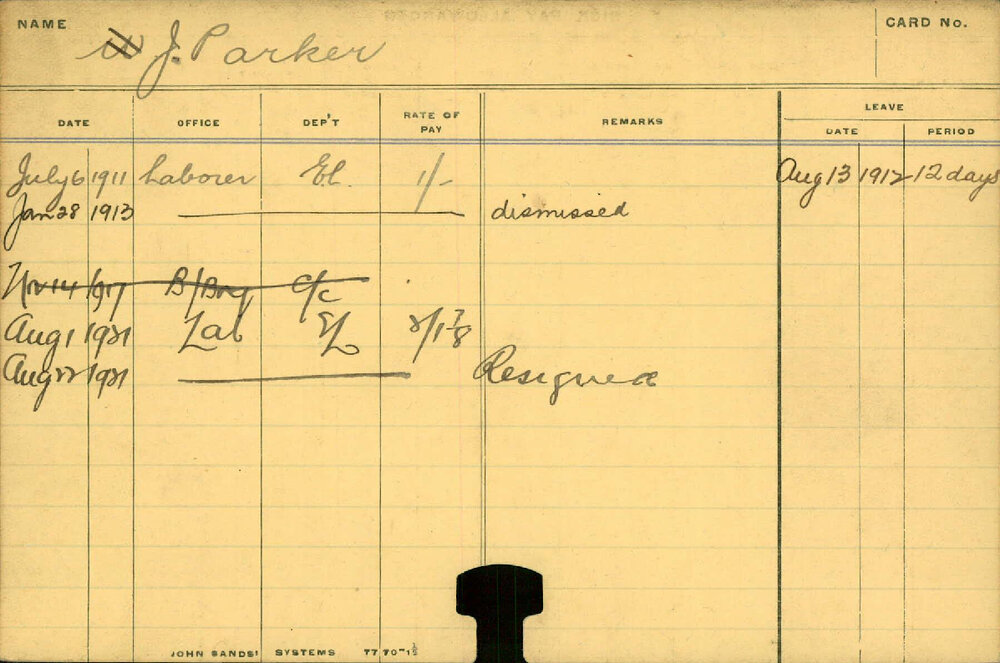 NAME
W J. Parker
CARD No.
DATE OFFICE DEP'T RATE OF PAY REMARKS LEAVE
DATE PERIOD
July 6 1911 Laborer El. 1/- Aug 13 1912 12 days
Jan 28 1913 dismissed
Nov 14 1917 B/Boy C/c
Aug 1 1921 Lab EL 2/1 7/8
Aug 22 1921 Resigned
JOHN SANDS' SYSTEMS 7770-1½